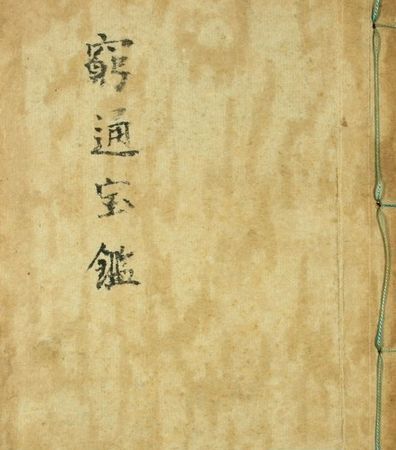 窮通宝鑑